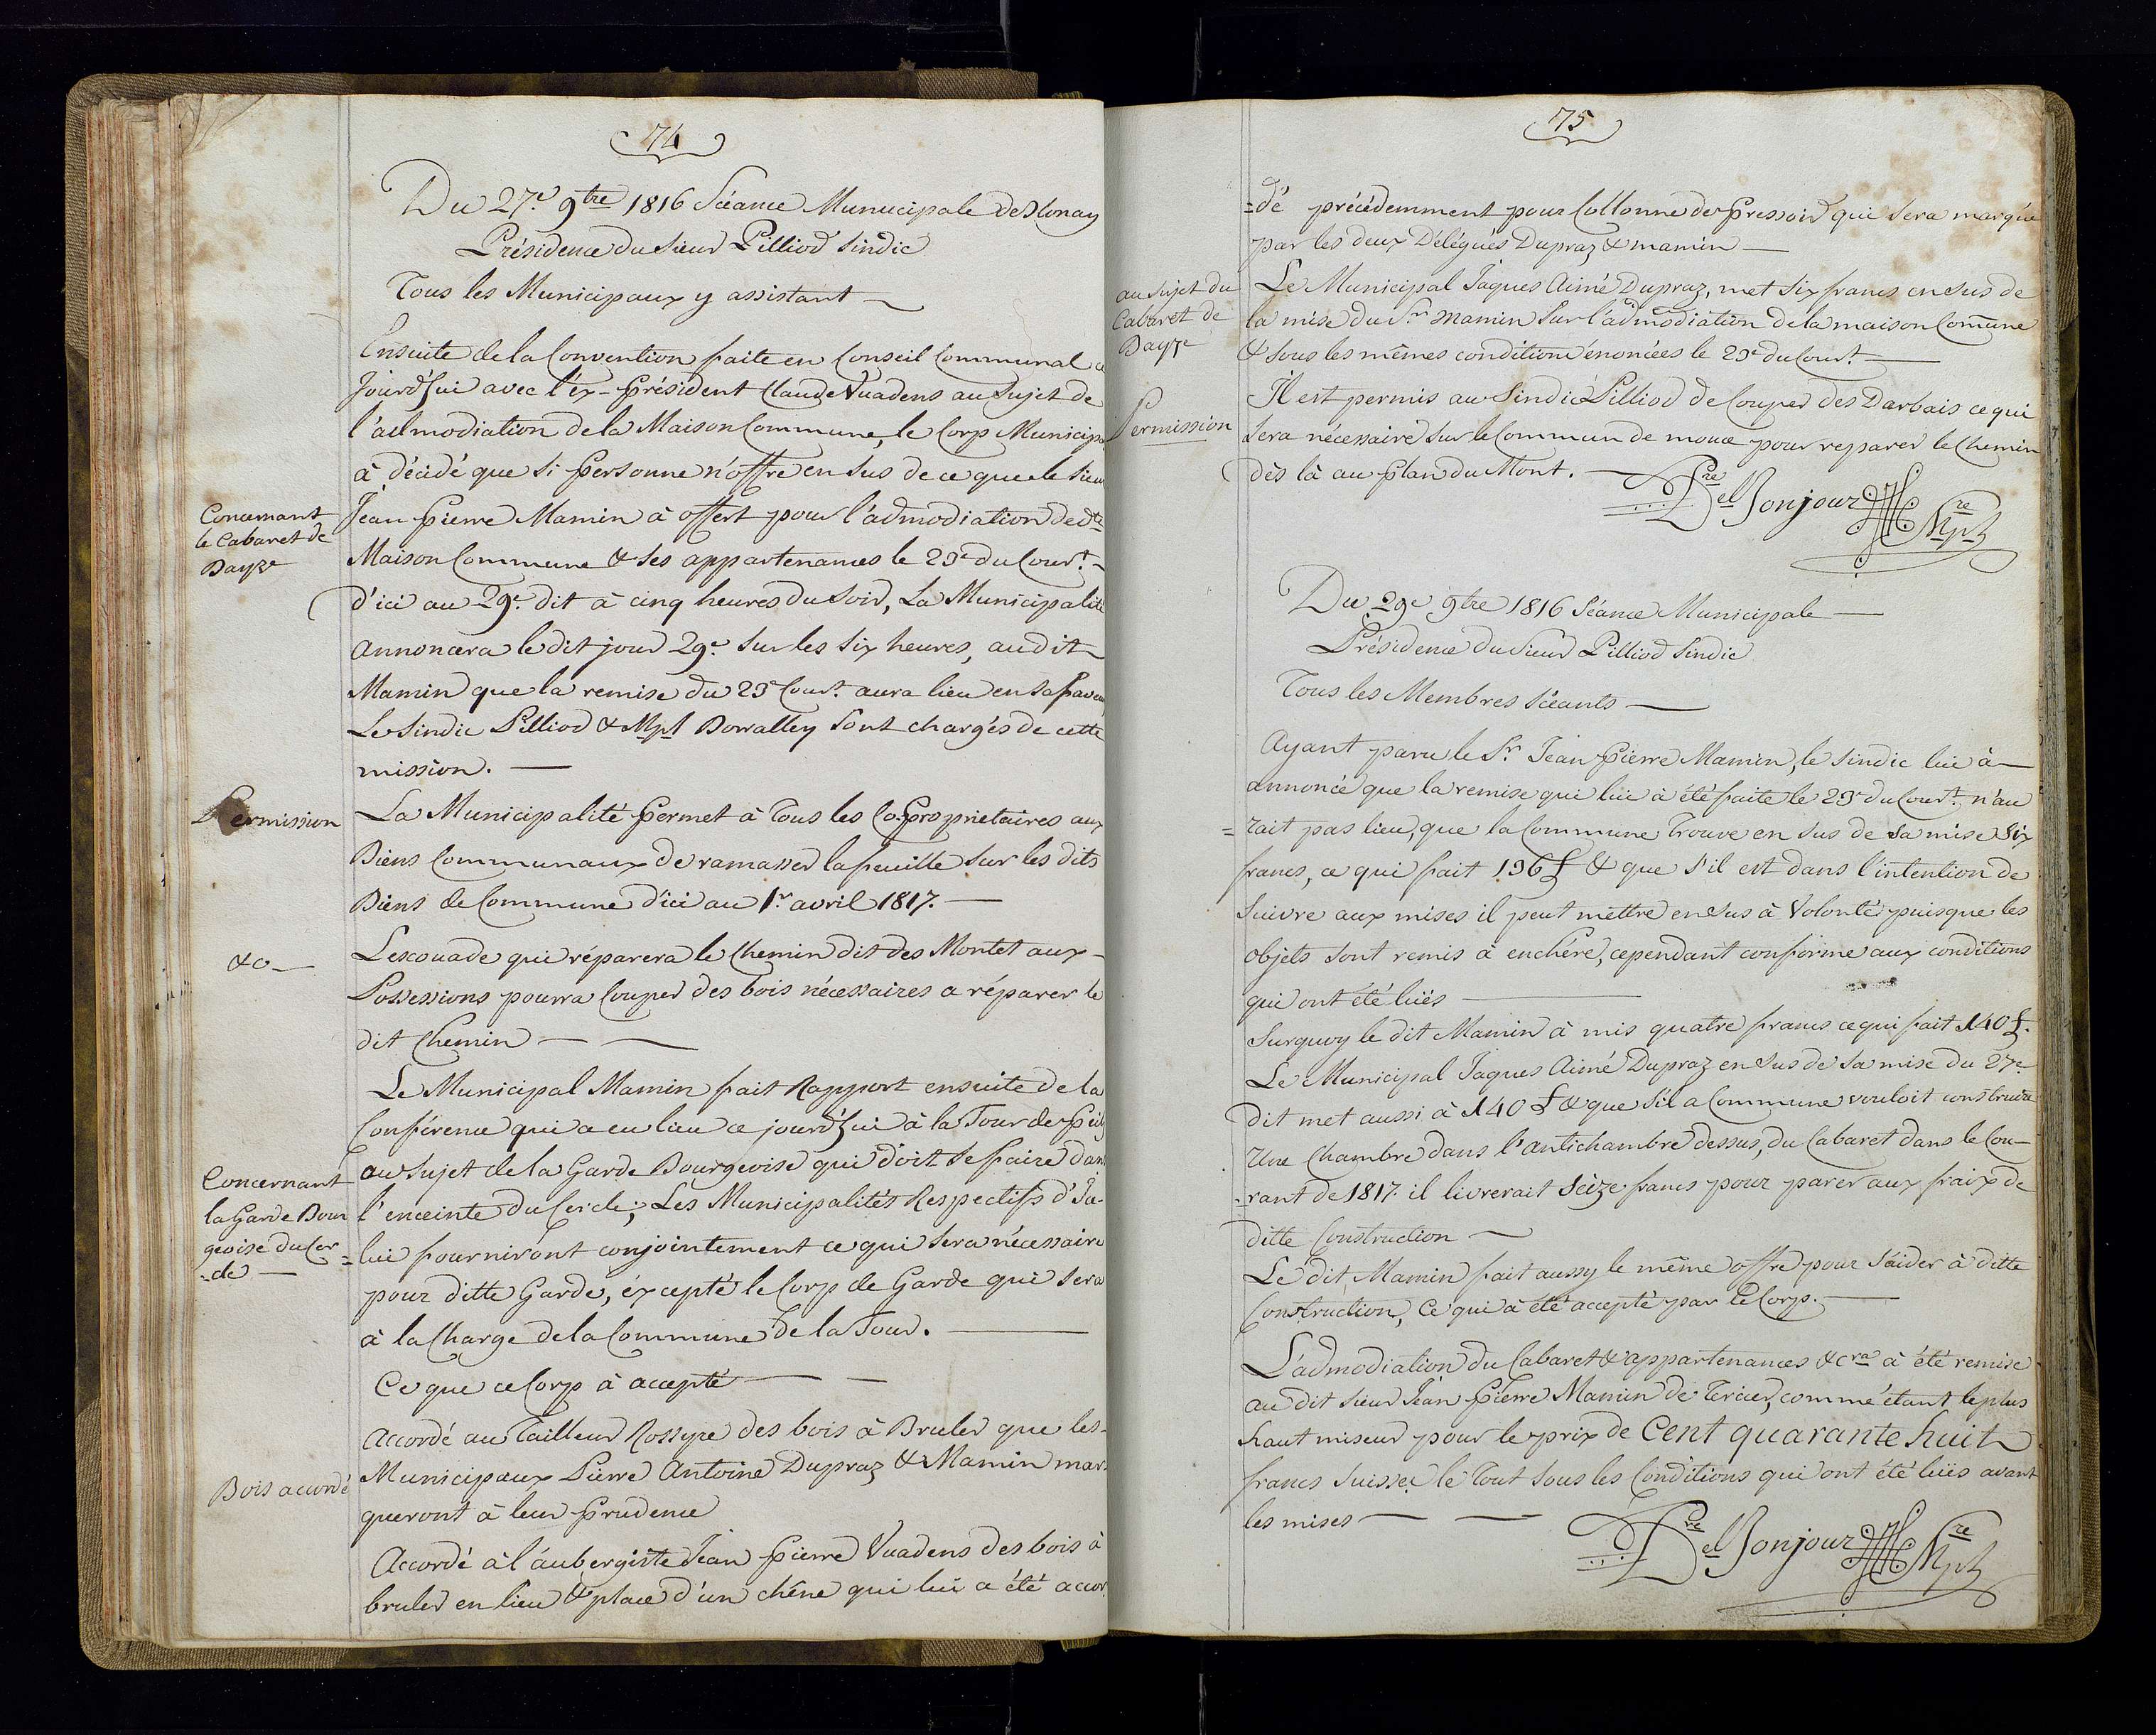 74
Du 27.e 9tre 1816 Séance Municipale de Blonay
Présidence du Sieur Pilliod Sindic
Tous les Municipaux y assistant —
Ensuite de la Convention faite en Conseil Communal ce
Jourd'hui avec l'ex-Président Claude Vuadens au Sujet de
l'admodiation de la Maison Commune, le Corp Municipal
à décidé que si Personne n'offre en Sus de ce que le Sieur
Concernant
le Cabaret de
Bayze
Jean Pierre Mamin à offert pour l'admodiation de dte
Maison Commune & Ses appartenances le 23e du Court. -
d'ici au 29e. dit à cinq heures du Soir, La Municipalité
annoncera le dit jour 29e. Sur les Six heures, au dit
Mamin que la remise du 23e Court. aura lieu en Sa faveur
Le Sindic Pilliod & Mpl Bonalley Sont chargés de cette
mission. —
Permission
La Municipalité Permet à Tous les Co-proprietaires aux
Biens Communaux de ramasser la feuille Sur les dits
Biens de Commune d'ici au 1r avril 1817. —
&c —
L'escouade qui réparera le Chemin dit des Montet aux -
Possessions pourra Couper des bois nécessaires a réparer le
dit Chemin — —
Le Municipal Mamin fait Rapport ensuite de la
Conférence qui a eu lieu ce jourd'hui à la Tour de Peilz
Concernant
la Garde Bour
geoise du Cer-
-cle —
au Sujet de la Garde Bourgeoise qui doit Se faire dans
l'enceinte du Cercle; Les Municipalités Respectifs d'Ja-
=lui fourniront conjointement ce qui Sera nécessaire
pour ditte Garde, éxcepté le Corp de Garde qui Sera
à la Charge de la Commune de la Tour. —
Ce que ce Corp à accepté — —
Bois accordé
Accordé au Tailleur Rossyre des bois à Bruler que les -
Municipaux Pierre Antoine Dupraz & Mamin mar-
queront à leur Prudence
Accordé à l'aubergiste Jean Pierre Vuadens des bois à
bruler en lieu & place d'un chêne qui lui a été accor
75
=dé précédemment pour Collonne de Pressoir qui Sera marqué
par les deux Délégués Dupraz & mamin —
au Sujet du
Cabaret de
Bayze
Le Municipal Jaques Aimé Dupraz, met Six francs en Sus de
la mise du Sr. Mamin Sur l'admodiation de la maison Comune
& Sous les mêmes condition énoncées le 23e du Court. —
Permission
Il est permis au Sindic Pilliod de Couper des Darbais ce qui
Sera nécessaire Sur le Commun de mouce pour reparer le Chemin
dès là au Plan du Mont. —
Del Bonjour Sre Mpl
Du 29e 9bre 1816 Séance Municipale —
Présidence du Sieur Pilliod Sindic
Tous les Membres Séants —
Ayant paru le Sr. Jean Pierre Mamin, le Sindic lui à —
annoncé que la remise qui lui à été faite le 23e du Court. n'au
=rait pas lieu, que la Commune Trouve en Sus de Sa mise Six
francs, ce qui fait 136 £ & que S'il est dans l'intention de
Suivre aux mises il peut mettre en Sus à Volonté puisque les
objets Sont remis à enchère, cependant conforme aux conditions
qui ont été lües —
Surquoy le dit Mamin à mis quatre francs ce qui fait 140 £.
Le Municipal Jaques Aimé Dupraz en Sus de Sa mise du 27e.
dit met aussi à 140 £ & que Si la Commune vouloit construire
Une Chambre dans l'antichambre dessus, du Cabaret dans le Cou-
-rant de 1817. il livrerait Seize francs pour parer aux fraix de
ditte Construction —
Le dit Mamin fait aussy le même offre pour S'aider à ditte
Construction, Ce qui à été accepté par le Corp. —
L'admodiation du Cabaret & appartenances &cra à été remise
au dit Sieur Jean Pierre Mamin de Tercier, comme étant le plus
haut miseur pour le prix de Cent quarante huit
francs Suisse. le Tout Sous les Conditions qui ont été lües avant
les mises — —
Del Bonjour Sre Mpl